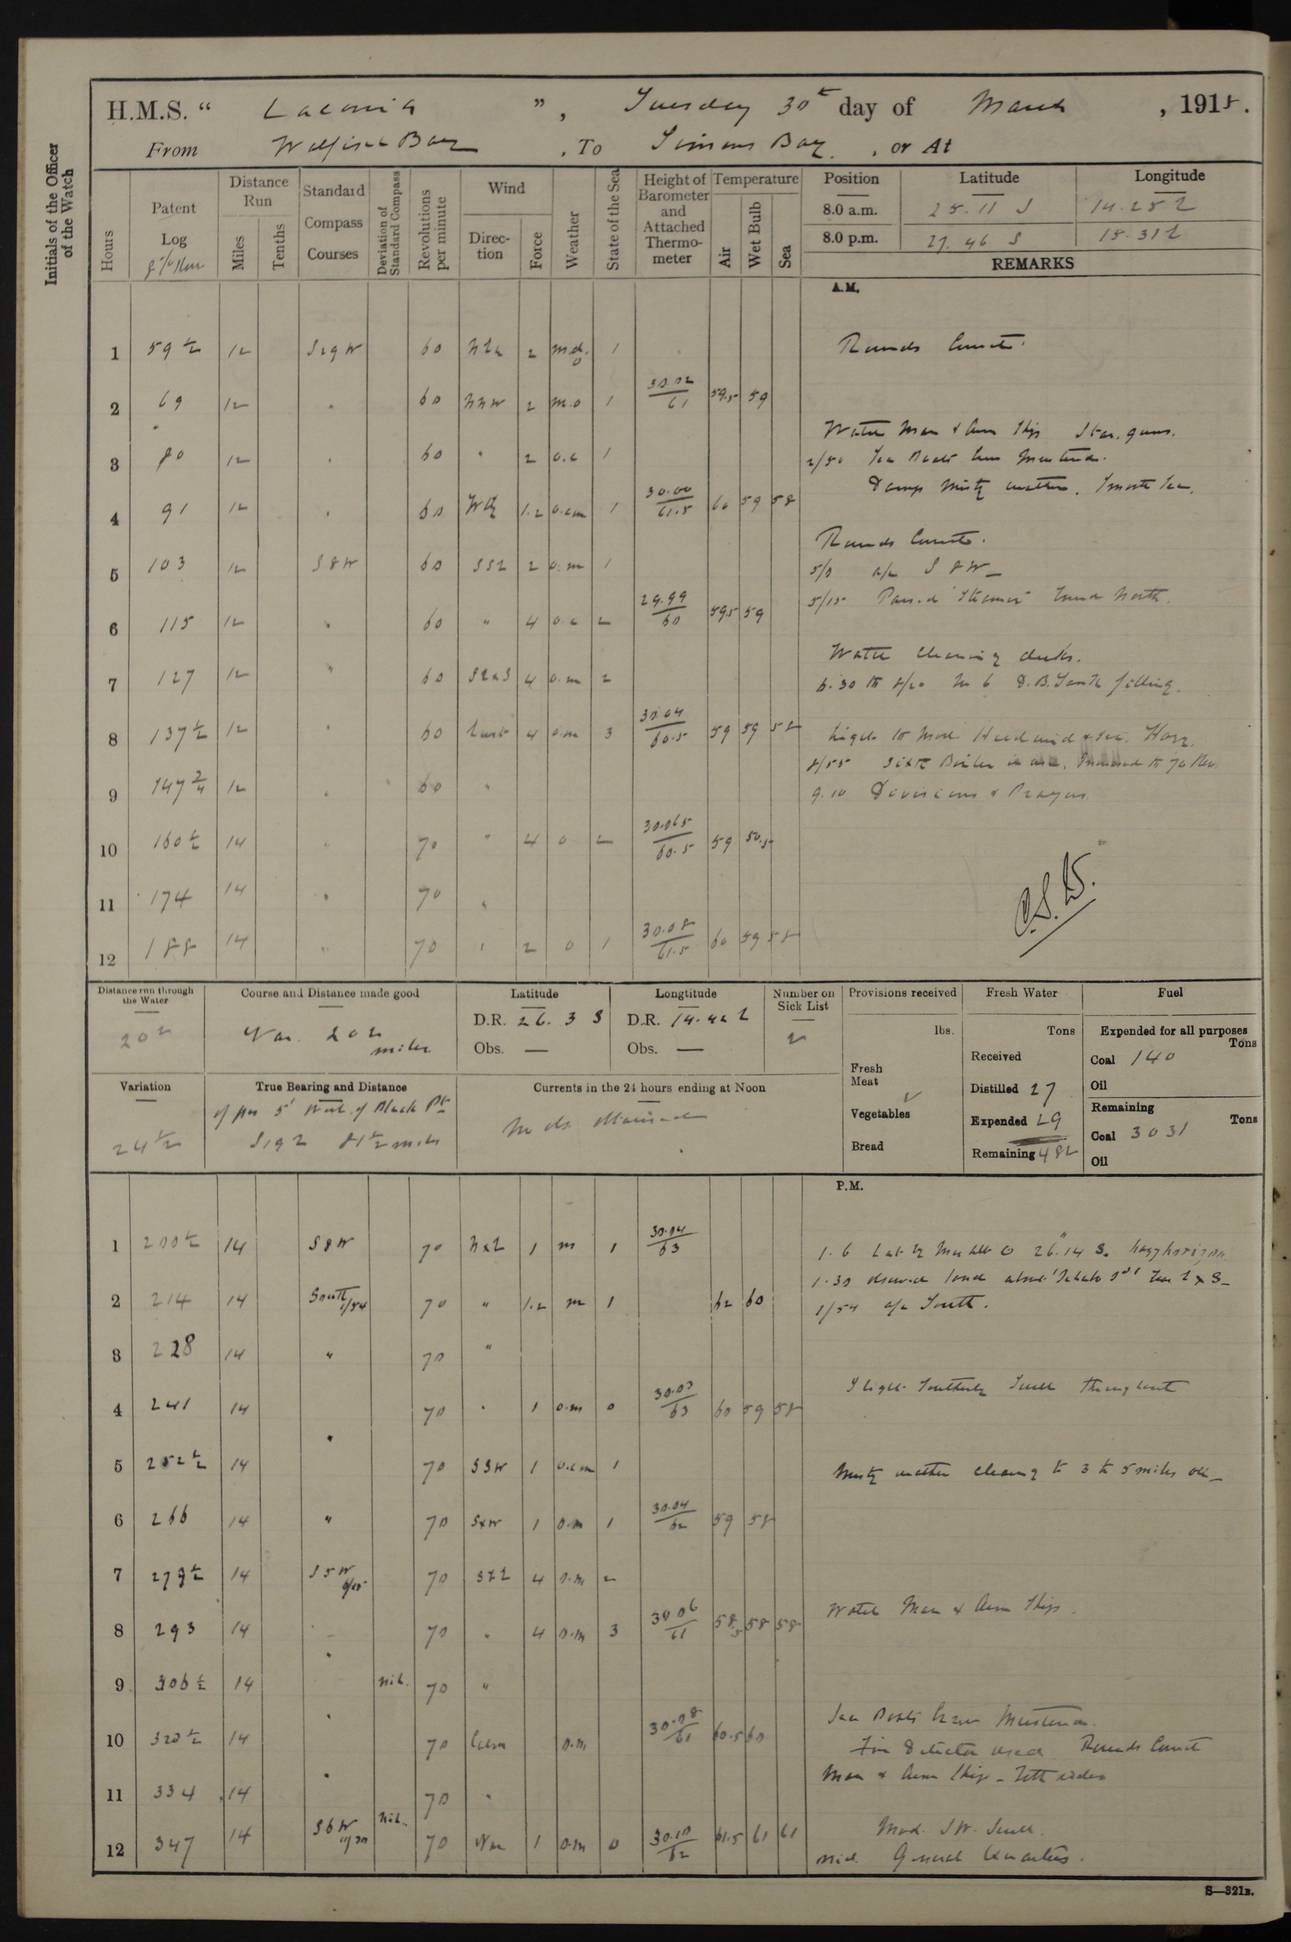 H.M.S. “ Laconia ”, Tuesday 30th day of March , 1915.
From Walfisch Bay , To Simons Bay , or At
Initials of the Officer of the Watch
Hours
Patent Log
Distance Run
Miles
Tenths
Standard Compass Courses
Deviation of Standard Compass
Revolutions per minute
Wind
Direction
Force
Weather
State of the Sea
Height of Barometer and Attached Thermometer
Temperature
Air
Wet Bulb
Sea
Position Latitude Longitude
8.0 a.m. 25.11 S 14.28 E
8.0 p.m. 27.46 S 15.31 E
REMARKS
A.M.
1 59½ 12 S29W 60 2 1 Rounds Correct.
2 69 12 " 60 NNW 2 m.o 1 30.02/61 59.5 59
Watch Man & Arm Ship Star. guns.
3 80 12 " 60 " 2 o.c 1 2/50 Sea Boats Crew Mustered.
Damp Misty weather. Smooth Sea.
4 91 12 " 60 1.2 o.c.m 1 30.00/61.5 60 59 58
Rounds Correct.
5 103 12 S8W 60 SSE 2 o.m 1 5/0 a/c S 8 W
6 115 12 " 60 " 4 o.c 2 29.99/60 59.5 59 5/15 Passed Steamer bound North.
Watch cleaning decks.
7 127 12 " 60 SExS 4 o.m 2 6.30 to 8/20 No 6 D.B. Tank filling.
8 137½ 12 " 60 4 o.m 3 30.04/60.5 59 59 58 Light to Mod. Head wind & sea. Hazy.
8/55 Sixth Boiler in use. Increased to 70 Rev
9 147¾ 12 " 60 " 9.10 Divisions & Prayers
10 160½ 14 " 70 " 4 o 2 30.065/60.5 59 58.5
11 174 14 " 70 "
12 188 14 " 70 " 2 o 1 30.08/61.5 60 59 58
Distance run through the Water
202
Course and Distance made good
Var. 202 miles
Latitude
D.R. 26. 3 S
Obs. —
Longtitude
D.R. 14.42 E
Obs. —
Number on Sick List
2
Provisions received
lbs.
Fresh Meat
Vegetables
Bread
Fresh Water
Tons
Received
Distilled 27
Expended 29
Remaining 482
Fuel
Expended for all purposes
Tons
Coal 140
Oil
Remaining
Tons
Coal 3031
Oil
Variation
24½
True Bearing and Distance
of pos 5' West of Black Pt
S19E 81½ miles
Currents in the 24 hours ending at Noon
Not obtained
P.M.
1 200½ 14 S8W 70 NxE 1 m 1 30.04/63 1.6 Lat by Mer Alt 26°.14 S. hazy horizon
2 214 14 South 1/54 70 " 1.2 m 1 62 60 1/54 a/c South.
3 228 14 " 70 "
4 241 14 70 " 1 o.m 0 30.03/63 60 59 58 Slight Southerly Swell throughout
5 252½ 14 " 70 SSW 1 o.c.m 1 Misty weather clearing to 3 to 5 miles
6 266 14 " 70 SxW 1 o.m 1 30.04/62 59 58
7 279½ 14 S5W 70 SxE 4 o.m 2
8 293 14 70 " 4 o.m 3 30.06/61 58.5 58 58 Watch Man & Arm Ship.
9 306½ 14 " nil. 70 "
Sea Boats Crew Mustered
10 320½ 14 " 70 Calm o.m 30.08/61 60.5 60 Fire Detector used Rounds Correct
11 334 14 " 70 " Man & Arm Ship – both sides
12 347 14 S6W 11/30 nil. 70 Var 1 o.m 0 30.10/62 61.5 61 61 Mod. SW. Swell.
Mid. General Quarters.
S—321B.